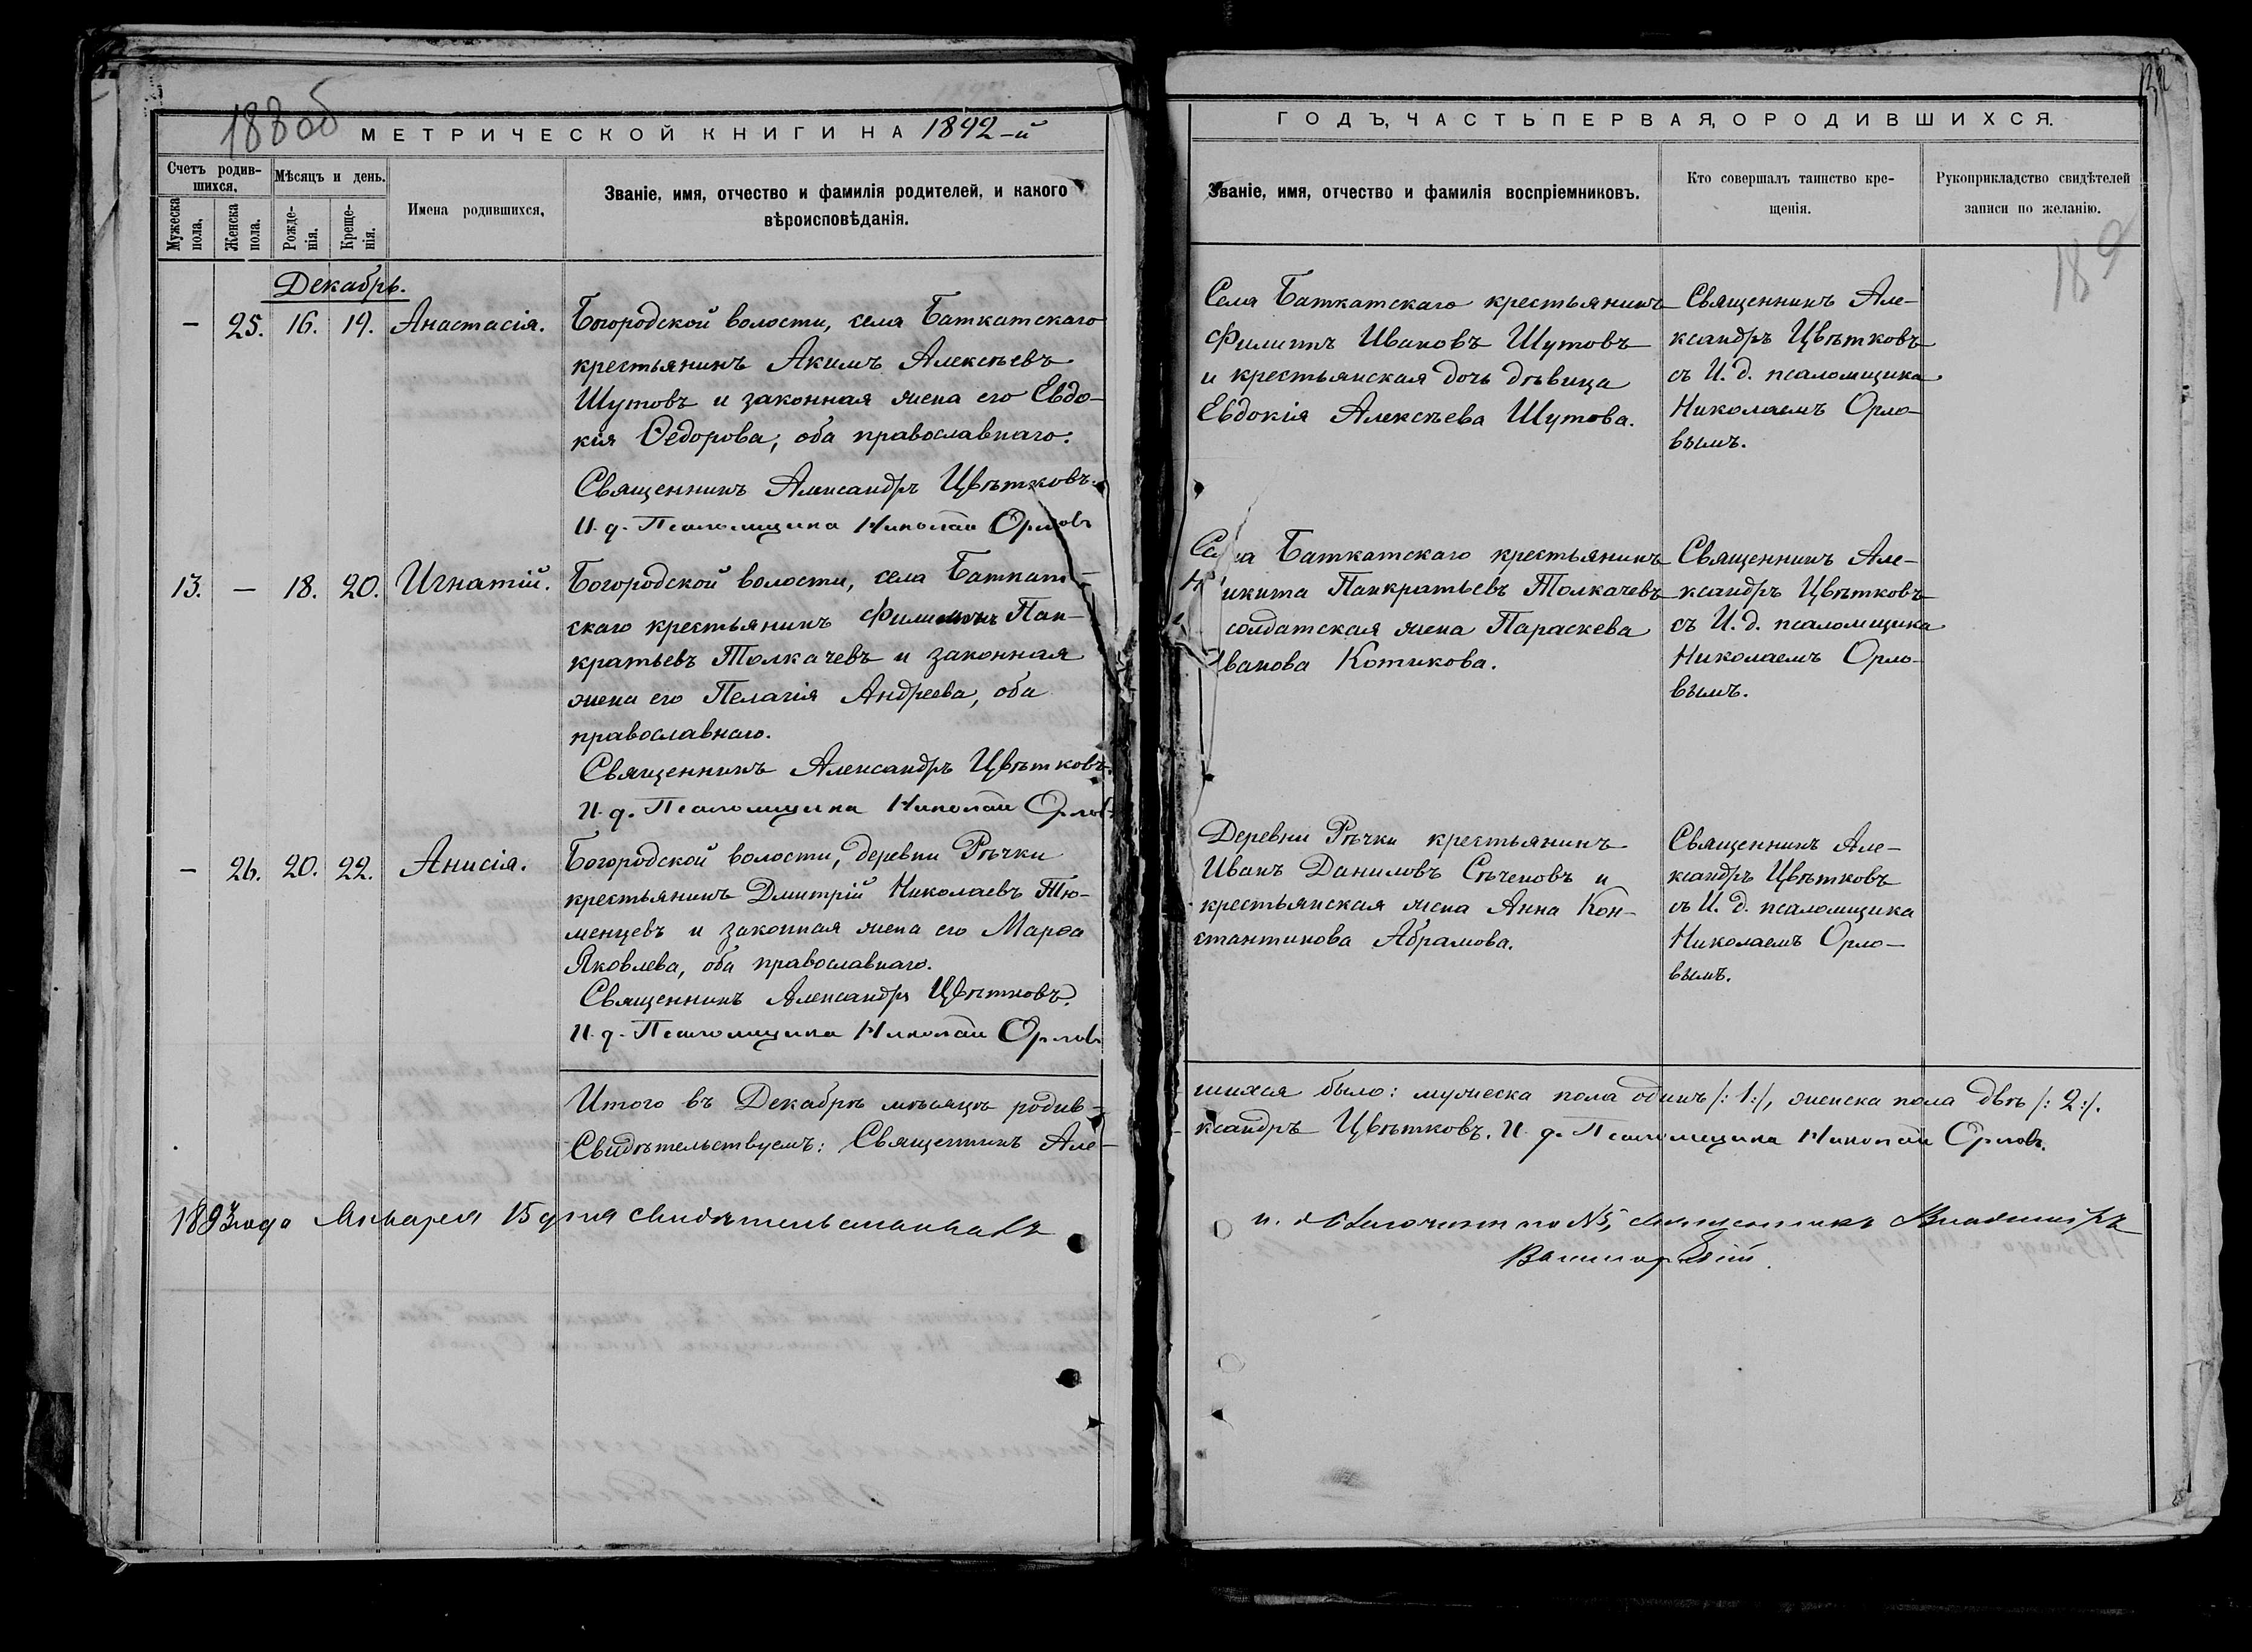 188об
МЕТРИЧЕСКОЙ КНИГИ НА 1892-й
Счетъ родив-
шихся.
Мѣсяцъ и день.
Имена родившихся.
Званіе, имя, отчество и фамилія родителей, и какого
вѣроисповѣданія.
Мужеска
пола.
Женска
пола.
Рожде-
нія.
Креще-
нія.
Декабрь.
— 25. 16. 19. Анастасія. Богородской волости, села Баткатскаго
крестьянинъ Акимъ Алексѣевъ
Шутовъ и законная жена его Евдо-
кія Ѳедорова, оба православнаго.
Священникъ Александръ Цвѣтковъ.
И. д. Псаломщика Николай Орловъ
13. — 18. 20. Игнатій. Богородской волости, села Баткат-
скаго крестьянинъ Филиппъ Пан-
кратьевъ Толкачевъ и законная
жена его Пелагія Андреева, оба
православнаго.
Священникъ Александръ Цвѣтковъ.
И. д. Псаломщика Николай Орловъ
— 26. 20. 22. Анисія. Богородской волости, деревни Рѣчки
крестьянинъ Дмитрій Николаевъ Тю-
менцевъ и законная жена его Марѳа
Яковлева, оба православнаго.
Священникъ Александръ Цвѣтковъ.
И. д. Псаломщика Николай Орловъ
Итого въ Декабрѣ мѣсяцѣ родив-
Свидѣтельствуемъ: Священникъ Але-
1893 года Января 15 дня свидѣтельствовалъ
ГОДЪ, ЧАСТЬ ПЕРВАЯ, О РОДИВШИХСЯ.
Званіе, имя, отчество и фамилія воспріемниковъ.
Кто совершалъ таинство кре-
щенія.
Рукоприкладство свидѣтелей
записи по желанію.
189
Села Баткатскаго крестьянинъ
Филиппъ Ивановъ Шутовъ
и крестьянская дочь дѣвица
Евдокія Алексѣева Шутова.
Священникъ Але-
ксандръ Цвѣтковъ
съ И. д. псаломщика
Николаемъ Орло-
вымъ.
Села Баткатскаго крестьянинъ
Никита Панкратьевъ Толкачевъ
и солдатская жена Параскева
Иванова Котикова.
Священникъ Але-
ксандръ Цвѣтковъ
съ И. д. псаломщика
Николаемъ Орло-
вымъ.
Деревни Рѣчки крестьянинъ
Иванъ Даниловъ Сѣченовъ и
крестьянская жена Анна Кон-
стантинова Абрамова.
Священникъ Але-
ксандръ Цвѣтковъ
съ И. д. псаломщика
Николаемъ Орло-
вымъ.
шихся было: мужеска пола одинъ /: 1 :/, женска пола двѣ /: 2 :/.
ксандръ Цвѣтковъ. И. д. Псаломщика Николай Орловъ.
и. д. Благочиннаго № 5, священникъ Владиміръ